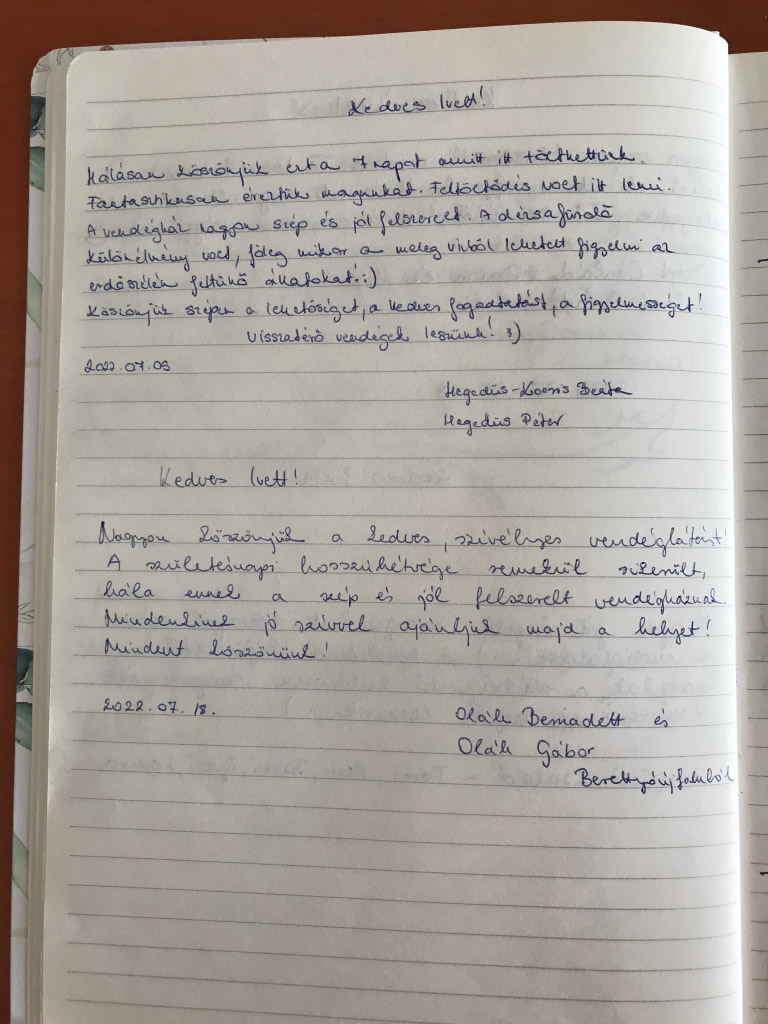 Kedves Ivett!
Hálásan köszönjük ezt a 7 napot amit itt tölthettünk.
Fantasztikusan éreztük magunkat. Feltöltődés volt itt lenni.
A vendégház nagyon szép és jól felszerelt. A dézsafürdő
külön élmény volt, főleg mikor a meleg vízből lehetett figyelni az
erdőszélén feltűnő állatokat! :)
Köszönjük szépen a lehetőséget, a kedves fogadtatást, a figyelmességet!
Visszatérő vendégek leszünk! :)
2022.07.03
Hegedüs- Beáta
Hegedüs Péter
Kedves Ivett!
Nagyon köszönjük a kedves, szívélyes vendéglátást!
A születésnapi hosszúhétvége remekül sikerült,
hála ennek a szép és jól felszerelt vendégháznak.
Mindenkinek jó szívvel ajánljuk majd a helyet!
Mindent köszönünk!
2022.07.18.
Oláh Bernadett és
Oláh Gábor
Berettyóújfaluból